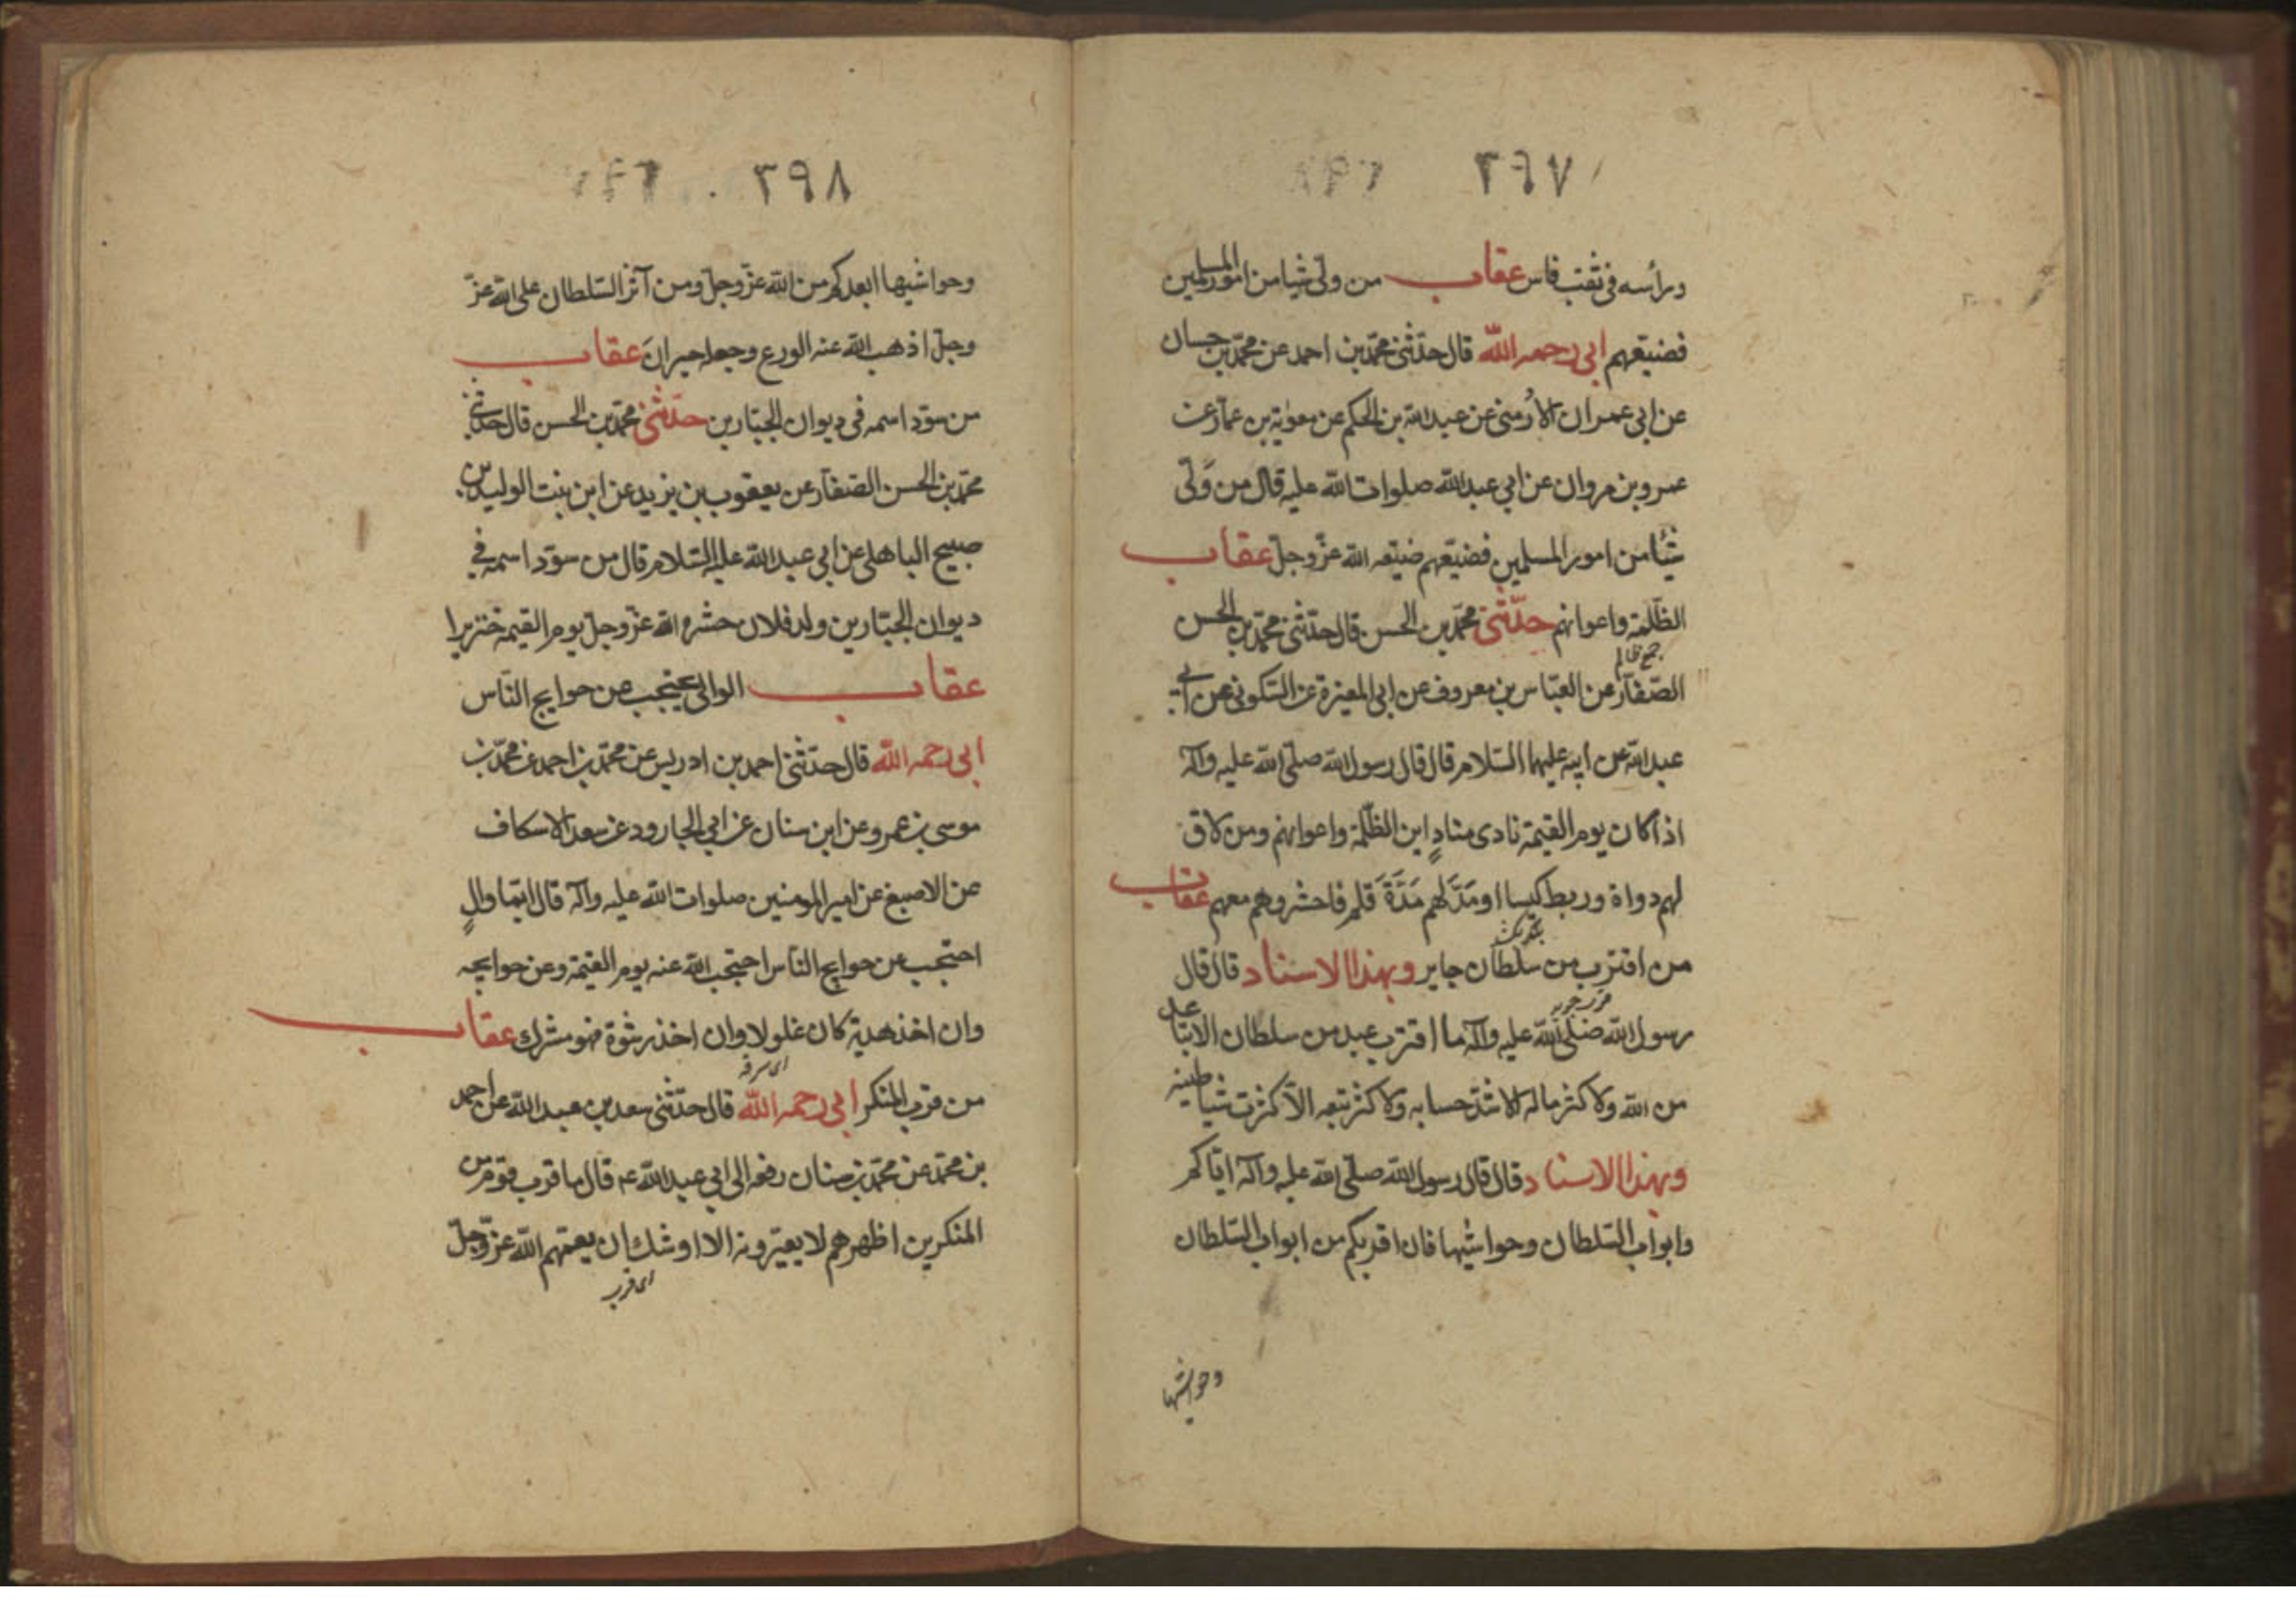 ٣٩٧
وراسه فى ثقب فاس عقاب من ولى شيا من امور المسلمين
فضيعهم ابى رحمه الله قال حدثنى محمد بن احمد عن محمد بن حسان
عن ابى عمران الارمنى عن عبد الله بن الحكم عن معوية بن عمار عن
عمرو بن مروان عن ابى عبد الله صلوات الله عليه قال من ولى
شيئا من امور المسلمين فضيعهم ضيعه الله عز وجل عقاب
الظلمة واعوانهم حدثنى محمد بن الحسن قال حدثنى محمد بن الحسن
جمع ظالم
الصفار عن العباس بن معروف عن ابى المغيرة عن السكونى عن ابى
عبد الله عن ابيه عليهما السلام قال قال رسول الله صلى الله عليه وآله
اذا كان يوم القيمة نادى مناد اين الظلمة واعوانهم ومن لاق
لهم دواة وربط كيسا او مد لهم مدة قلم فاحشروهم معهم عقاب
من اقترب من سلطان جاير وبهذا الاسناد قال قال
رسول الله صلى الله عليه وآله ما اقترب عبد من سلطان الا تباعد
من الله ولا كثر ماله الا اشتد حسابه ولا كثر تبعه الا كثرت شياطينه
وبهذا الاسناد قال قال رسول الله صلى الله عليه وآله اياكم
وابواب السلطان وحواشيها فان اقربكم من ابواب السلطان
وحواشيها
٣٩٨
وحواشيها ابعدكم من الله عز وجل ومن آثر السلطان على الله عز
وجل اذهب الله عنه الورع وجعله حيران عقاب
من سود اسمه فى ديوان الجبارين حدثنى محمد بن الحسن قال حدثنى
محمد بن الحسن الصفار عن يعقوب بن يزيد عن ابن بنت الوليد بن
صبيح الباهلى عن ابى عبد الله عليه السلام قال من سود اسمه فى
ديوان الجبارين ولد فلان حشره الله عز وجل يوم القيمه خنزيرا
عقاب الوالى يحتجب عن حوايج الناس
ابى رحمه الله قال حدثنى احمد بن ادريس عن محمد بن احمد عن محمد بن
موسى بن عمرو عن ابن سنان عن ابى الجارود عن سعد الاسكاف
عن الاصبغ عن امير المومنين صلوات الله عليه وآله قال ايما وال
احتجب عن حوايج الناس احتجب الله عنه يوم القيمة وعن حوايجه
وان اخذ هدية كان غلولا وان اخذ رشوة فهو مشرك عقاب
اى سرقة
من قرب المنكر ابى رحمه الله قال حدثنى سعد بن عبد الله عن احمد
بن محمد عن محمد بن سنان رفعه الى ابى عبد الله عم قال ما قرب قوم من
المنكر بين اظهرهم لا يعيرونه الا اوشك ان يعمهم الله عز وجل
اى قرب